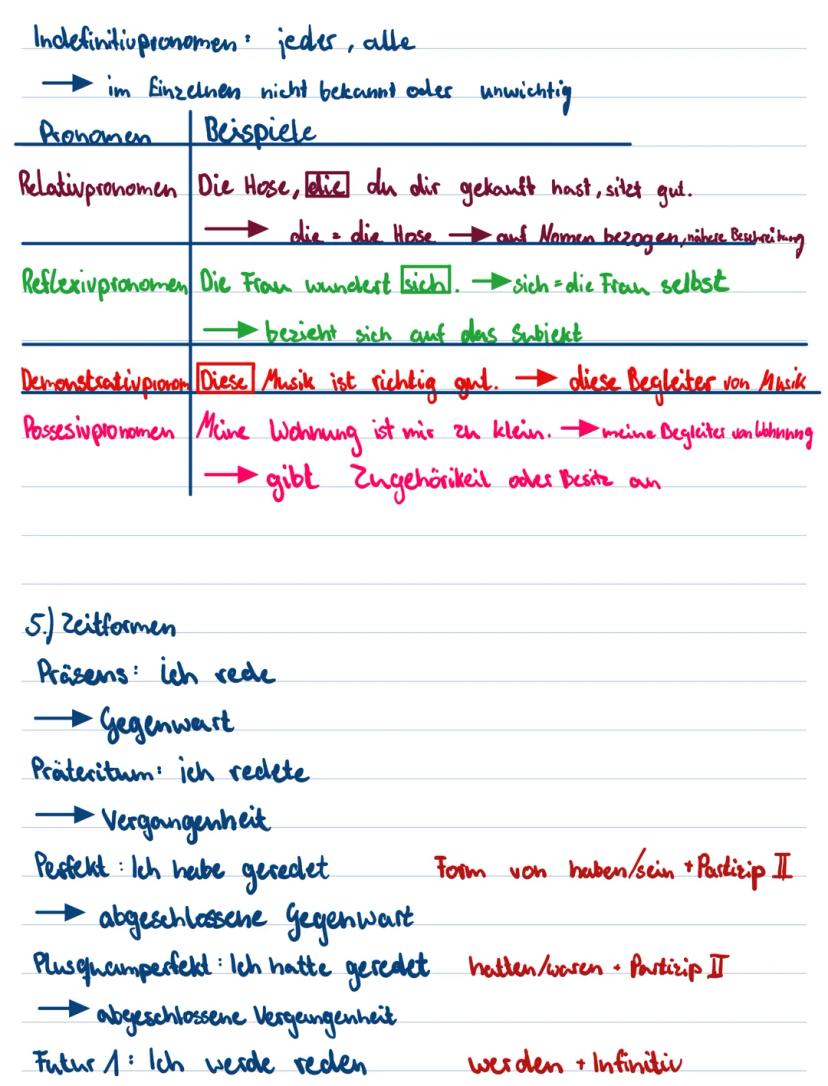 Indefinitivpronomen: jeder, alle
→ im Einzelnen nicht bekannt oder unwichtig
Pronomen Beispiele
Relativpronomen Die Hose, die du dir gekauft hast, sitzt gut.
→ die = die Hose → auf Nomen bezogen, nähere Beschreibung
Reflexivpronomen Die Frau wundert sich. → sich = die Frau selbst
→ bezieht sich auf das Subjekt
Demonstrativpronom Diese Musik ist richtig gut. → diese Begleiter von Musik
Possesivpronomen Meine Wohnung ist mir zu klein. → meine Begleiter von Wohnung
→ gibt Zugehörikeit oder Besitz an
5.) Zeitformen
Präsens: ich rede
→ Gegenwart
Präteritum: ich redete
→ Vergangenheit
Perfekt: Ich habe geredet Form von haben/sein + Partizip II
→ abgeschlossene Gegenwart
Plusquamperfekt: Ich hatte geredet hatten/waren + Partizip II
→ abgeschlossene Vergangenheit
Futur 1: Ich werde reden werden + Infinitiv